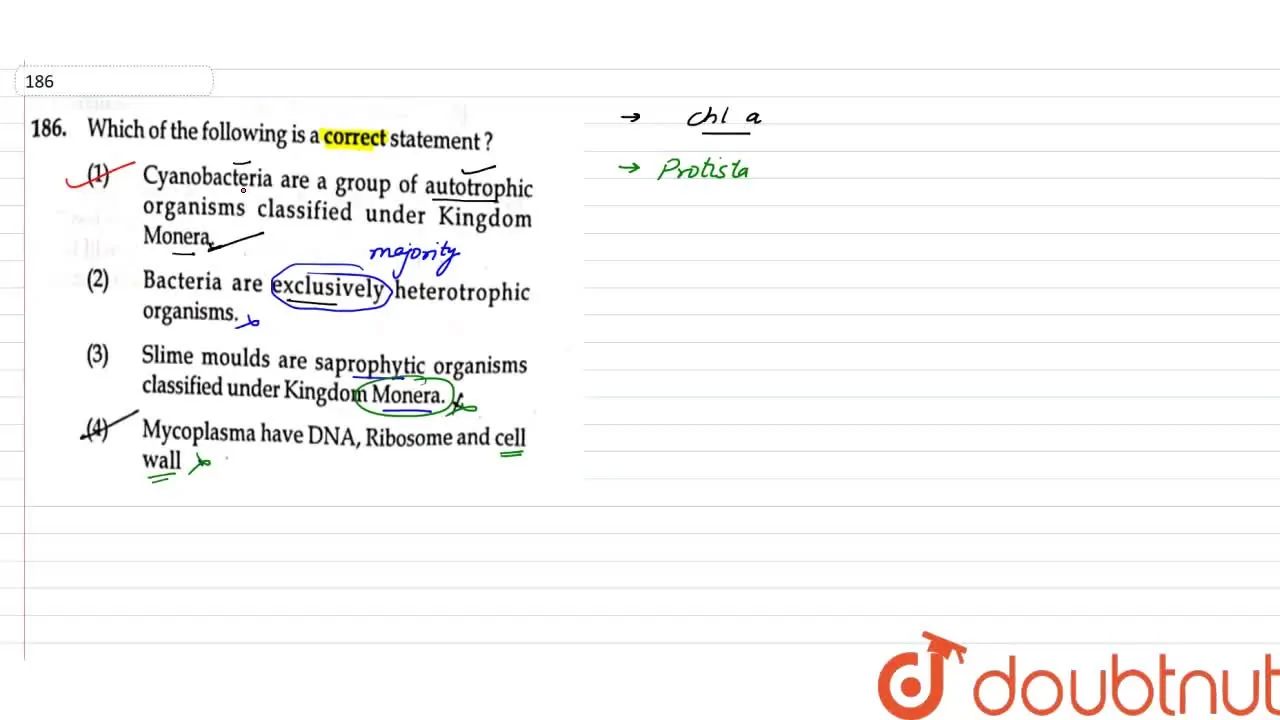 186
186. Which of the following is a correct statement ?
→ chl a
→ Protista
(1) Cyanobacteria are a group of autotrophic
organisms classified under Kingdom
Monera.
majority
(2) Bacteria are exclusively heterotrophic
organisms.
(3) Slime moulds are saprophytic organisms
classified under Kingdom Monera.
(4) Mycoplasma have DNA, Ribosome and cell
wall
doubtnut